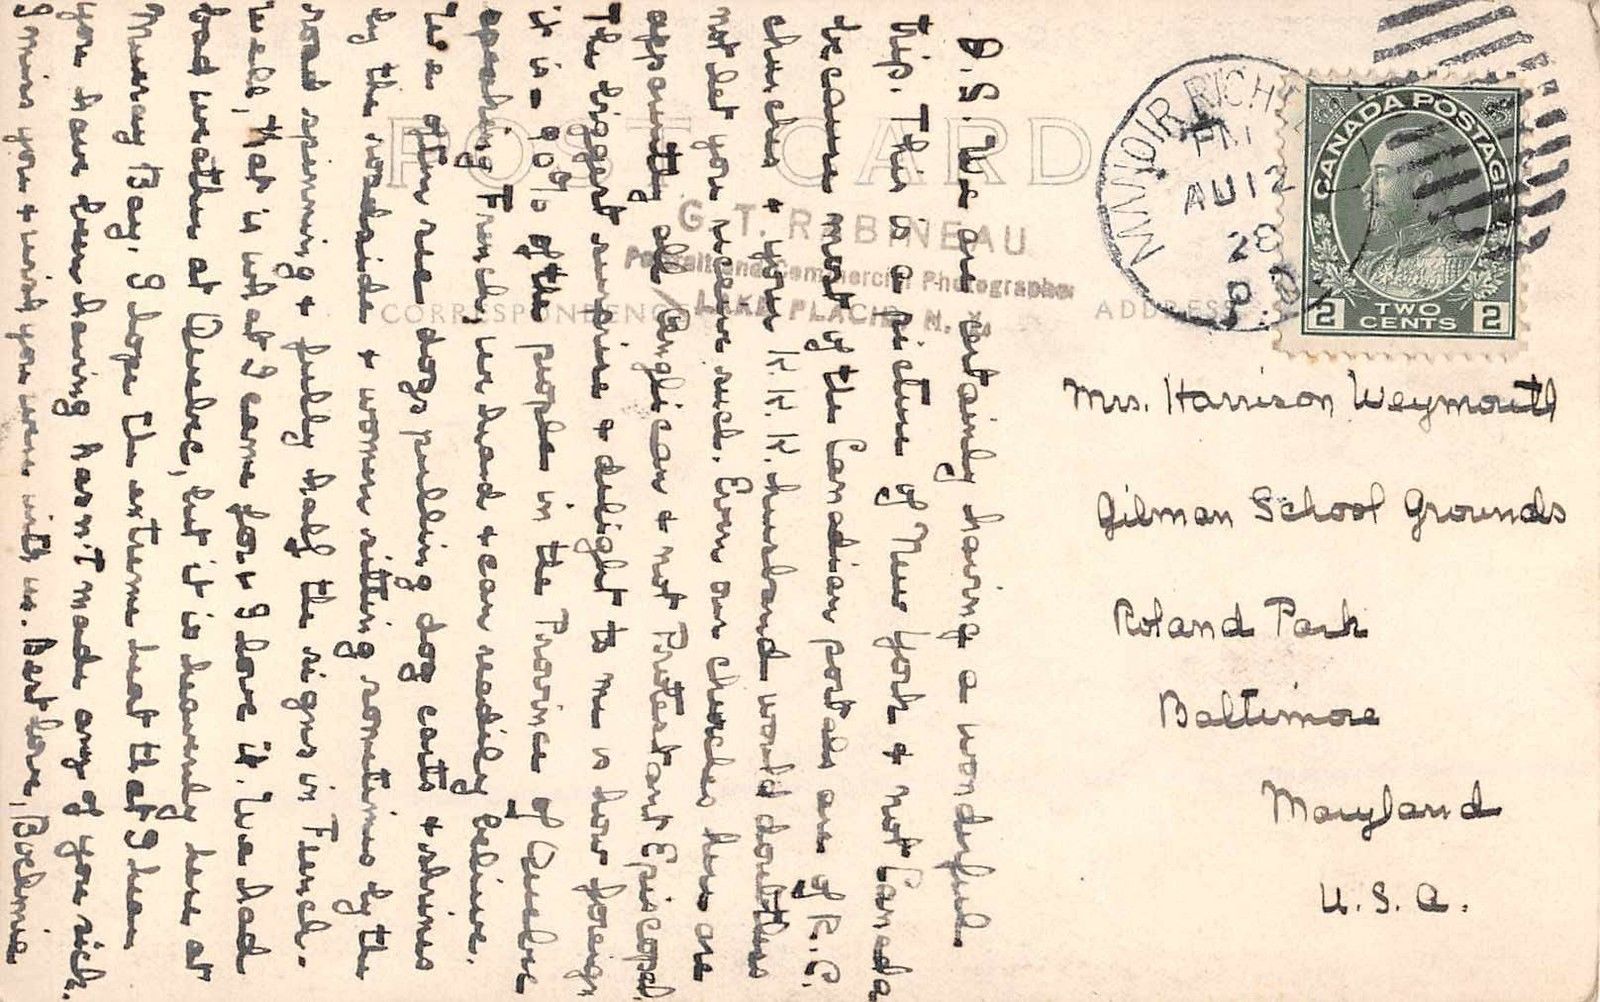 POST CARD
G. T. RABINEAU
Portrait and Commercial Photographer
LAKE PLACID, N. Y.
CORRESPONDENCE
ADDRESS
MANOIR RICH
PM
AU 12
28
CANADA POSTAGE
2 TWO CENTS 2
Mrs. Harrison Weymouth
Gilman School Grounds
Roland Park
Baltimore
Maryland
U.S.A.
P.S. We are certainly having a wonderful
trip. This is a picture of New York & not Canada
because most of the Canadian postals are of R.C.
churches & your K.K.K. husband would doubtless
not let you receive such. Even our churches here are
apparently all Anglican & not Protestant Episcopal.
The biggest surprise & delight to me is how foreign
it is - 90% of the people in the Province of Quebec
speaking French, we read & can readily believe.
We often see dogs pulling dog carts & shrines
by the roadside & women sitting sometimes by the
road spinning & fully half the signs in French.
Well, that is what I came for & I love it. We had
bad weather at Quebec, but it is heavenly here at
Murray Bay. I hope the extreme heat that I hear
you have been having hasn't made any of you sick.
I miss you & wish you were with us. Best love,